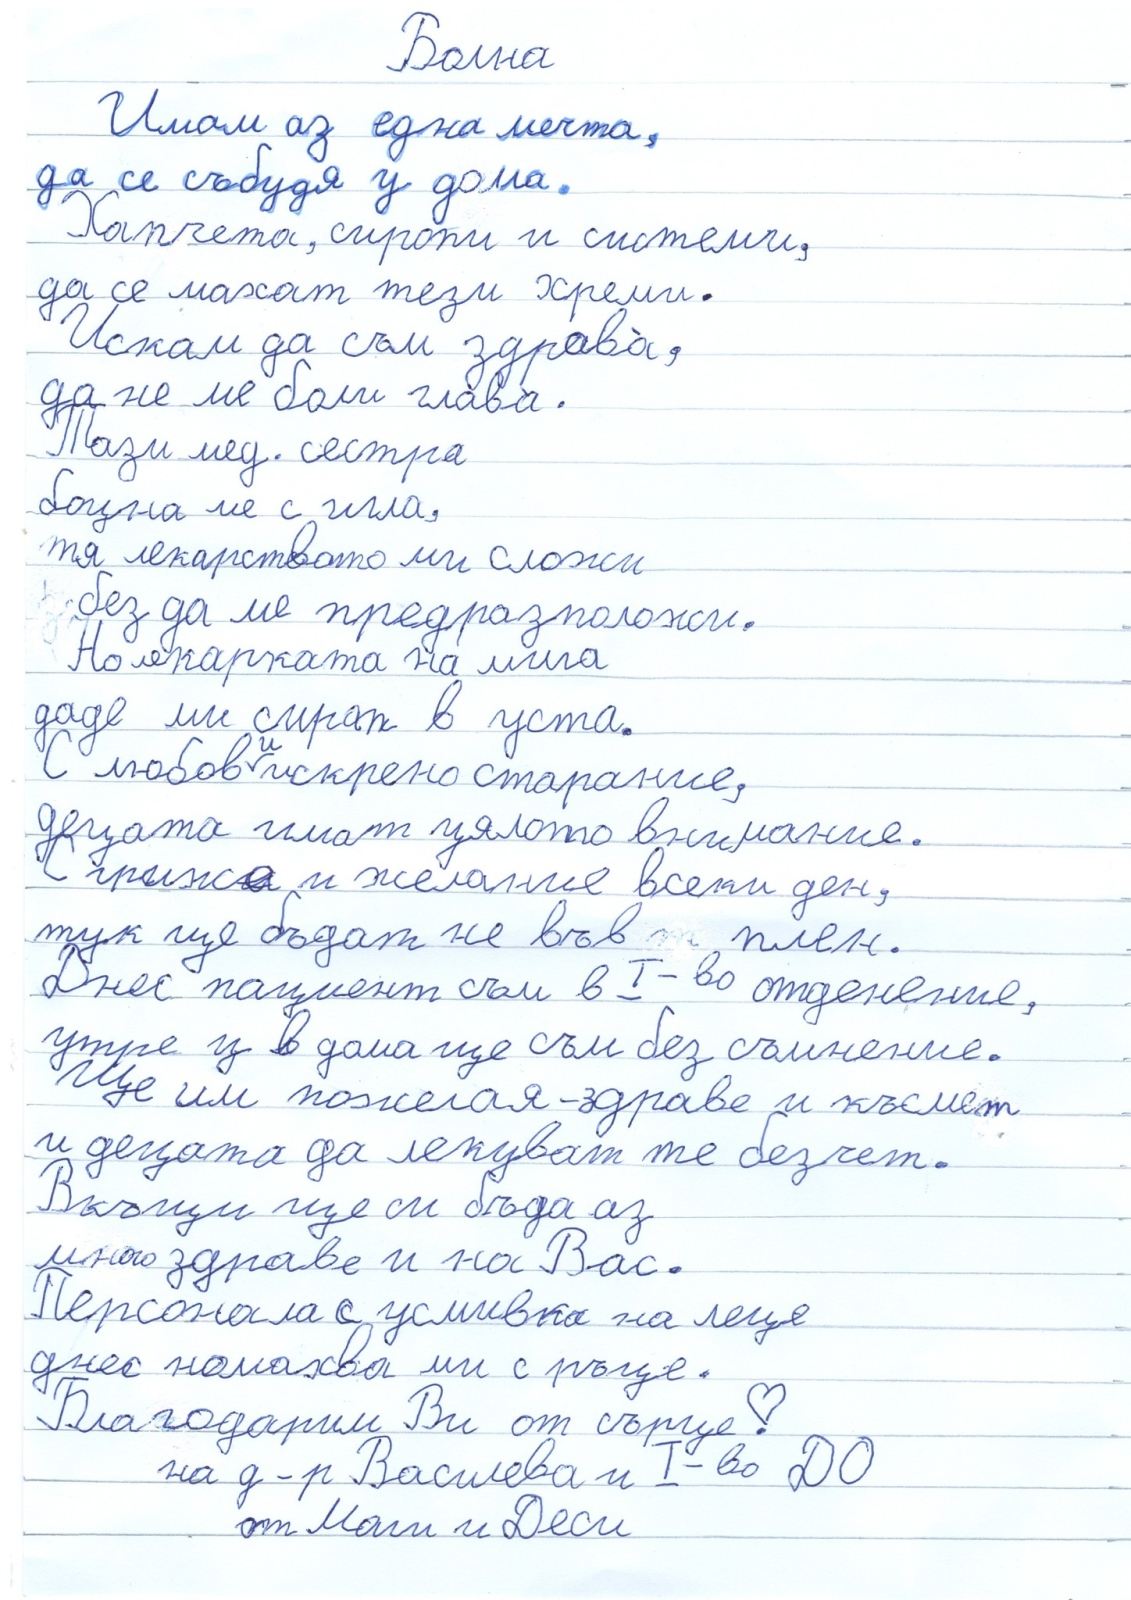 Болна
Имам аз една мечта,
да се събудя у дома.
Хапчета, сиропи и системи,
да се махат тези хреми.
Искам да съм здрава,
да не ме боли глава.
Тази мед. сестра
боцна ме с игла,
тя лекарството ми сложи
без да ме предразположи.
Но лекарката на мига
даде ми сироп в уста.
С любов и искрено старание,
децата имат цялото внимание.
С грижа и желание всеки ден,
тук ще бъдат не във плен.
Днес пациент съм в I-во отделение,
утре у в дома ще съм без съмнение.
Ще им пожелая-здраве и късмет
и децата да лекуват те безчет.
Вкъщи ще си бъда аз
много здраве и на Вас.
Персонала с усмивка на леце
днес помахва ми с ръце.
Благодарим Ви от сърце!
на д-р Василева и I-во ДО
от Маги и Деси